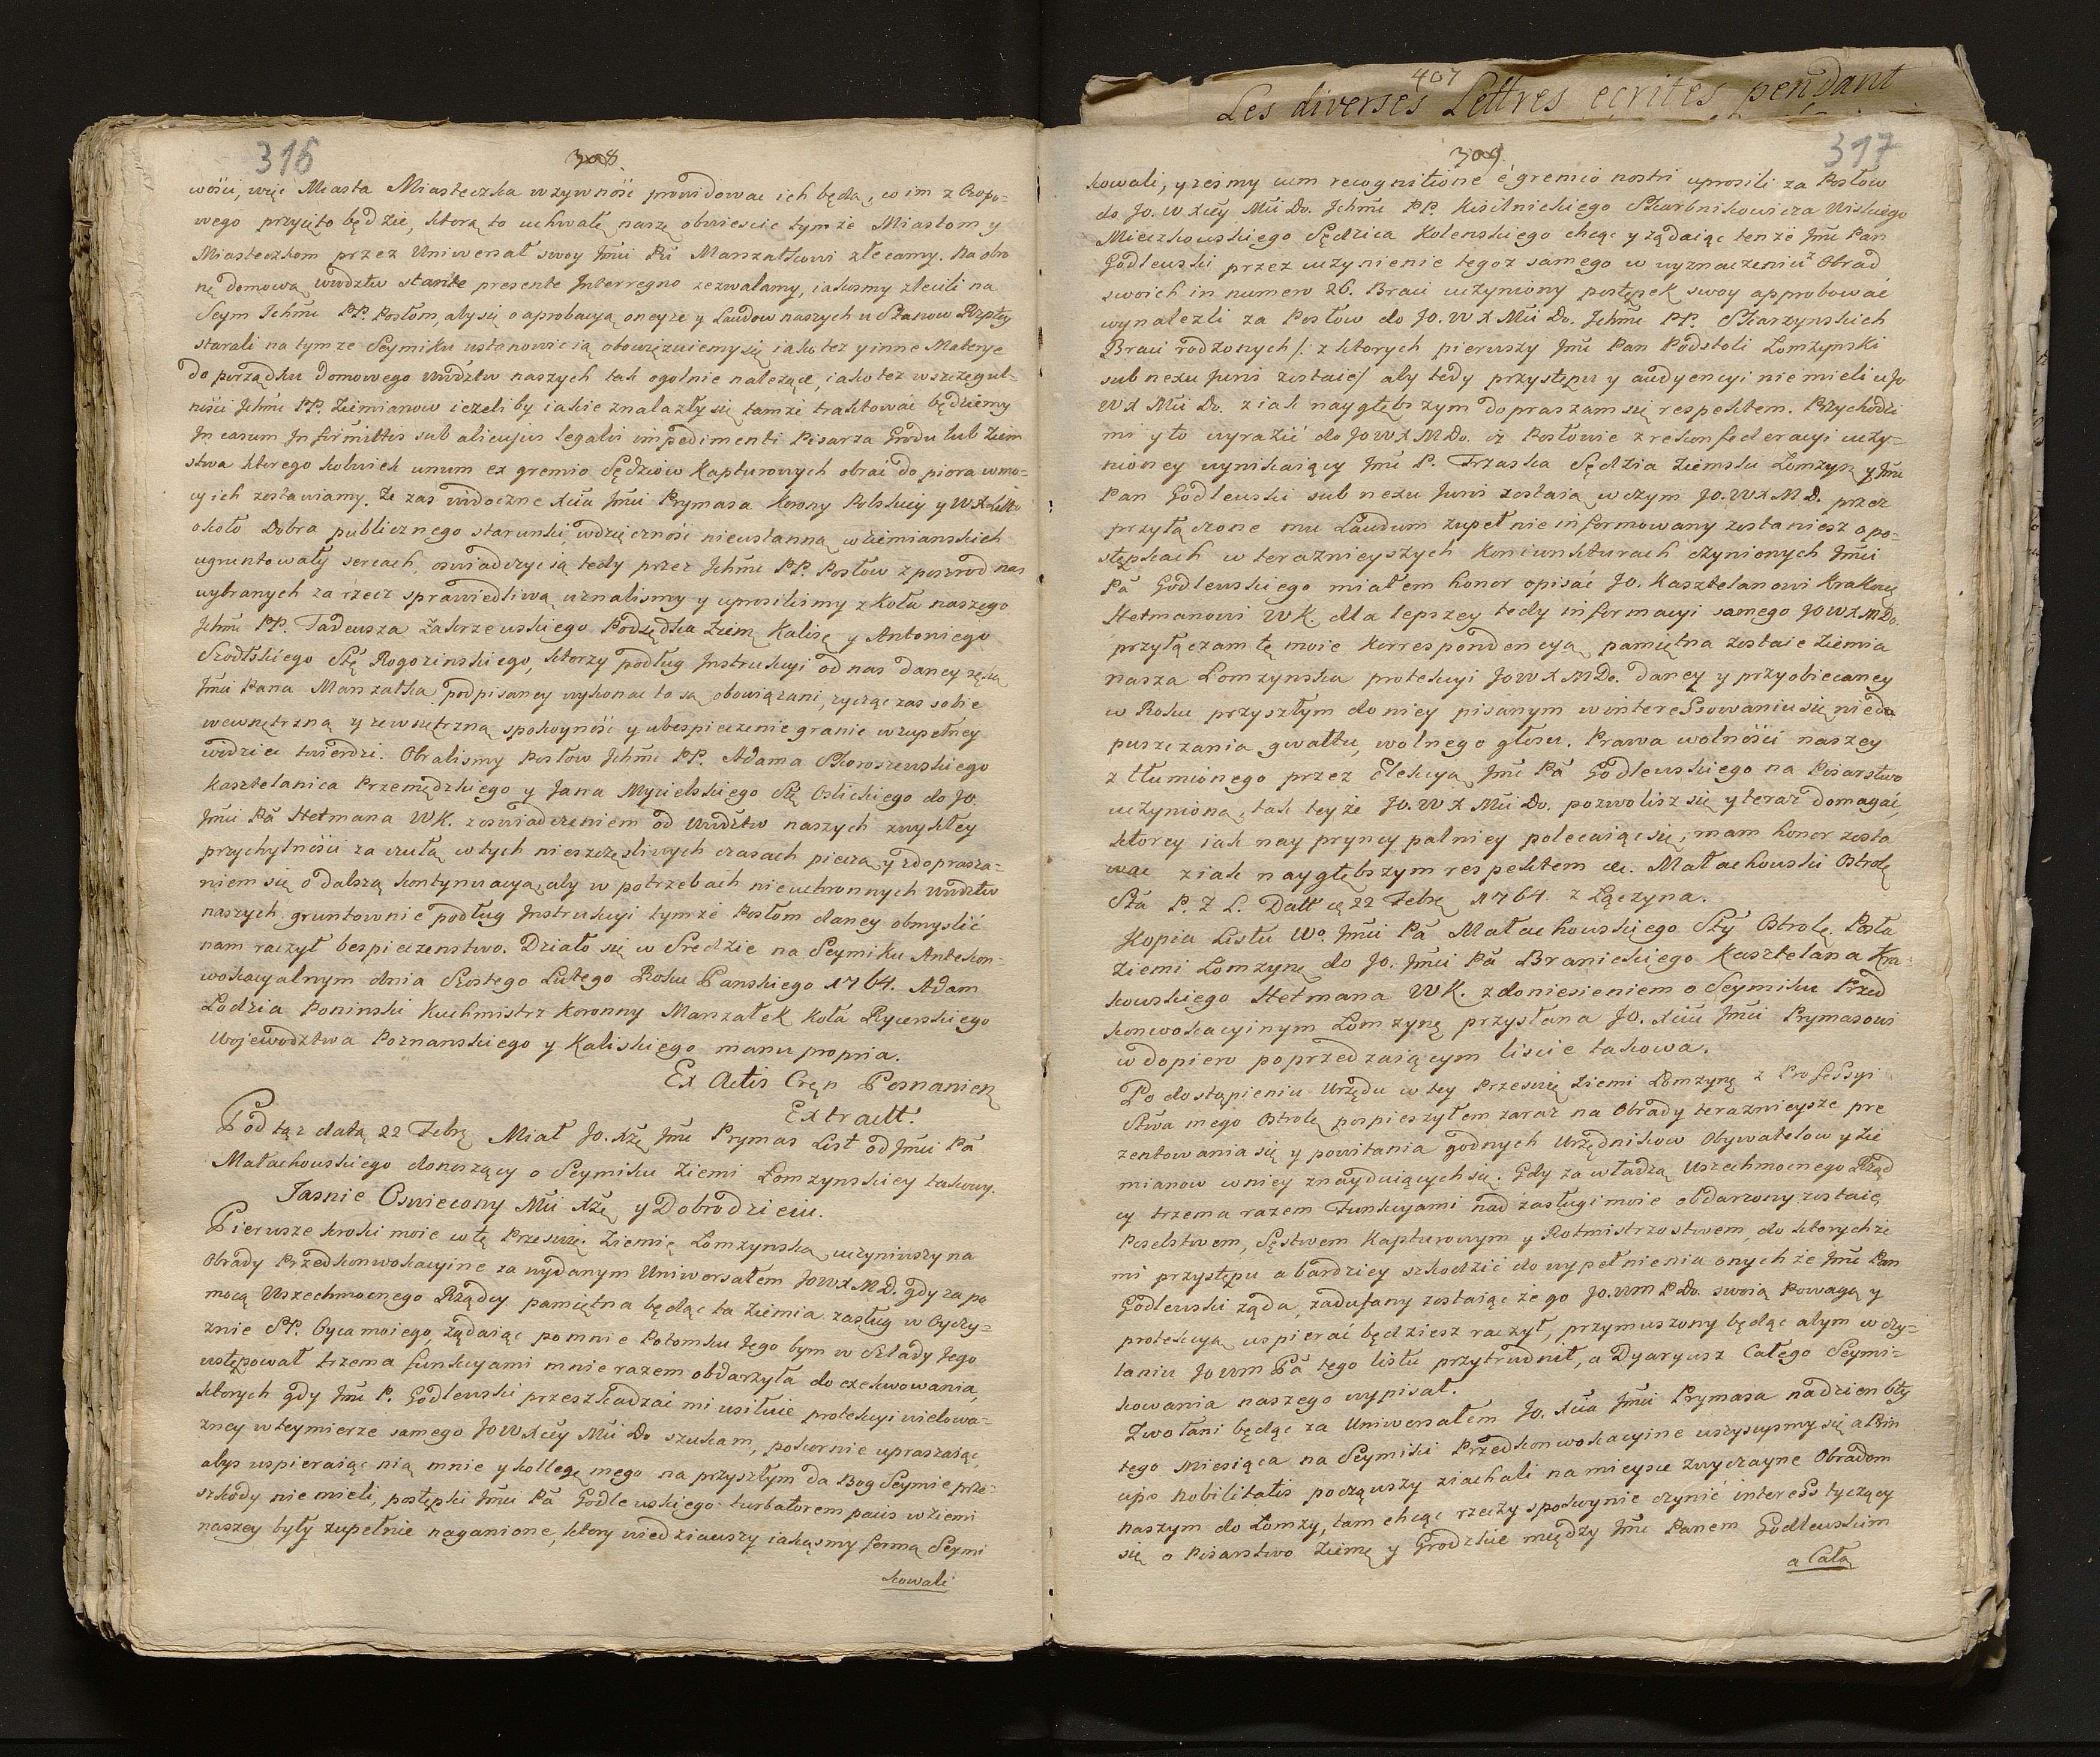 316
308.
wości, więc Miasta Miasteczka w zywność prowidowac ich będą, co im z Czopo-
wego przyięto będzie, ktorą to uchwałę naszę obwiescic tymże Miastom y
Miasteczkom przez Uniwersał swoy Jmci Pu Marszałkowi zlecamy. Na obro
nę domową wwdztw stante presente Interregno zezwalamy, iakosmy zlecili na
Seym Ichmc PP. Posłom, aby się o aprobacyą oneyze y Laudow naszych u Stanow Rzpltey
starali na tymze Seymiku ustanowic ią obowięzuiemy się iako tez y inne Materye
do porządku domowego wwdztw naszych tak ogolnie należące, iako tez w szczegul-
ności Ichmc PP. Ziemianow iezeliby iakie znalazły się tamże traktować będziemy
In casum Infirmitatis sub alicujus legalis impedimenti Pisarza Grodu lub Ziem
stwa ktorego kolwiek unum ex gremio Sędziow Kapturowych obrac do piora w mo-
cy ich zostawiamy. Ze zas widoczne Xcia Jmci Prymasa Korony Polskiey y WXLitto
około Dobra publicznego starunki, wdzięczność nieustanną w ziemianskich
ugruntowały sercach, oswiadczyc ią tedy przez Ichmc PP. Posłow z posrzod nas
wybranych za rzecz sprawiedliwą uznalismy y uprosilismy z Koła naszego
Ichmc PP. Tadeusza Zakrzewskiego Podsędka Ziem. Kalisę y Antoniego
Szołdskiego Stę Rogozinskiego, ktorzy podług Instrukcyi od nas daney ręką
Jmci Pana Marszałka podpisaney wykonac to są obowiązani, zycząc zas sobie
wewnętrzną y zewnętrzną spokoyność y ubespieczenie granic w zupełney
widziec twierdzi. Obralismy Posłow Ichmc PP. Adama Skoroszewskiego
Kasztelanica Przemędzkiego y Jana Mycielskiego Stę Oslickiego do Jo.
Jmci Pa Hetmana WK. z oswiadczeniem od wwdztw naszych zwykłey
przychylności za czułą w tych nieszczęsliwych czasach pieczą y z dopraszа-
niem się o dalszą kontynuacyą, aby w potrzebach nieuchronnych wwdztw
naszych gruntownie podług Instrukcyi tymże Posłom daney obmyslić
nam raczył bespieczenstwo. Działo się w Sredzie na Seymiku Antekon-
wokacyalnym dnia Szostego Lutego Roku Panskiego 1764. Adam
Lodzia Poninski Kuchmistrz Koronny Marszałek Koła Rycerskiego
Wojewodztwa Poznanskiego y Kaliskiego manu propria.
Ex Actis Cręn Posnanien
Extract.
Pod tąz datą 22 Febrę Miał Jo. Xże Jmc Prymas List od Jmci Pa
Małachowskiego donoszący o Seymiku Ziemi Łomzynskiey takowy.
Jasnie Oswiecony Mci Xże y Dobrodzieiu.
Pierwsze kroki moie w tę Przeswię. Ziemię Łomzynską uczyniwszy na
Obrady Przedkonwokacyine za wydanym Uniwersałem JOWXMD. gdy za po
mocą Wszechmocnego Rządcy pamiętna będąc ta Ziemia zasług w Oyczy-
znie SP. Oyca moiego, żądaiąc po mnie Potomku Jego bym w Slady Jego
wstępował trzema funkcyami mnie razem obdarzyła do exekwowania,
ktorych gdy Jmc P. Godlewski przeszkadzać mi usiłuie protekcyi nielowa-
zney w teymierze samego JOWXcey Mci Do szukam, pokornie upraszaiąc,
abys wspieraiąc nią mnie y kollegę mego na przyszłym da Bog Seymie prze-
szkody nie mieli, postępki Jmci Pa Godlewskiego turbatorem pacis w ziemi
naszey były zupełnie naganione, ktory wiedziawszy iakąsmy formą Seymi
kowali
407
Les diverses Lettres ecrites pendant
317
309.
kowali, y zesmy cum recognitione e gremio nostri uprosili za Posłow
do Jo. WXcey Mci Do. Ichmc PP. Kisielnickiego Skarbnikowicza Wiskiego
Mieczkowskiego Sędzica Kolenskiego chcąc y żądaiąc tenże Jmc Pan
Godlewski przez uczynienie tegoz samego w wyznaczeniu z Obrad
swoich in numero 26. Braci uczyniony postępek swoy approbować
wynalezli za Posłow do Jo. WX Mci Do. Ichmc PP. Skarzynskich
Braci rodzonych /: z ktorych pierwszy Jmc Pan Podstoli Łomzynski
sub nexu Juris zostaie/ aby tedy przystępu y audyencyi nie mieli u Jo
WX Mci Do. z iak naygłębszym dopraszam się respektem. Przychodzi
mi y to wyrazić do JOWXMDo. iz Posłowie z rekonfederacyi uczy-
nioney wynikaiący Jmc P. Trzaska Sędzia Ziemski Łomzyn. y Jmc
Pan Godlewski sub nexu Juris zostaią w czym Jo.WXMD. przez
przyłączone mu Laudum zupełnie informowany zostaniesz o po-
stępkach w teraznieyszych Koniunkturach czynionych Jmci
Pa Godlewskiego miałem honor opisać Jo. Kasztelanowi Krakowę
Hetmanowi WK. dla lepszey tedy informacyi samego JOWXMDo.
przyłączam tę moie Korrespondencyą, pamiętna zostaie Ziemia
nasza Łomzynska protekcyi JOWXMDo. daney y przyobiecaney
w Roku przyszłym do niey pisanym w interessowaniu się niedo
puszczania gwałtu, wolnego głosu. Prawa wolności naszey
z tłumionego przez Elekcyą Jmc Pa Godlewskiego na Pisarstwo
uczynioną, tak teyże Jo. WX Mci Do. pozwolisz się y teraz domagać,
ktorey iak nay pryncypalniey polecaiąc się, mam honor zosta
wac z iak naygłębszym respektem etc. Małachowski Ostrolę
Sta P. Z Ł. Datt ę 22 Febrę 1764. z Łączyna.
Kopia Listu Wo. Jmci Pa Małachowskiego Sty Ostrolę. Posła
Ziemi Łomzynę do Jo. Jmci Pa Branickiego Kasztelana Kra-
kowskiego Hetmana WK. z doniesieniem o Seymiku Przed
konwokacyinym Łomzynę przysłana Jo. Xciu Jmci Prymasowi
w dopiero poprzedzaiącym liscie takowa.
Po dostąpieniu Urzędu w tey Przeswię Ziemi Łomzynę z Professyi
Stwa mego Ostrolę pospieszyłem zaraz na Obrady teraznieysze pre
zentowania się y powitania godnych Urzędnikow Obywatelow y Zie
mianow w niey znayduiących się. Gdy za władzą Wszechmocnego Rząd
cy trzema razem Funkcyami nad zasługi moie obdarzony zostaię
Poselstwem, Sęstwem Kapturowym y Rotmistrzostwem, do ktorychże
mi przystępu a bardziey szkodzić do wypełnienia onych że Jmc Pan
Godlewski żąda, zadufany zostaiąc że go Jo.WM PDo. swoią Powagą y
protekcyą wspierać będziesz raczył, przymuszony będąc abym w czy-
taniu JOWM Pa tego listu przytrudnił, a Dyaryusz Całego Seymi-
kowania naszego wypisał.
Zwołani będąc za Uniwersałem Jo. Xcia Jmci Prymasa na dzien 6ty
tego Miesiąca na Seymiki Przedkonwokacyine wszyscysmy się a Prin
cipe Nobilitatis począwszy ziachali na mieysce zwyczayne Obradom
naszym do Łomzy, tam chcąc rzeczy spokoynie czynić interess tyczący
się o Pisarstwo Ziemę y Grodzkie między Jmc Panem Godlewskim
a Całą